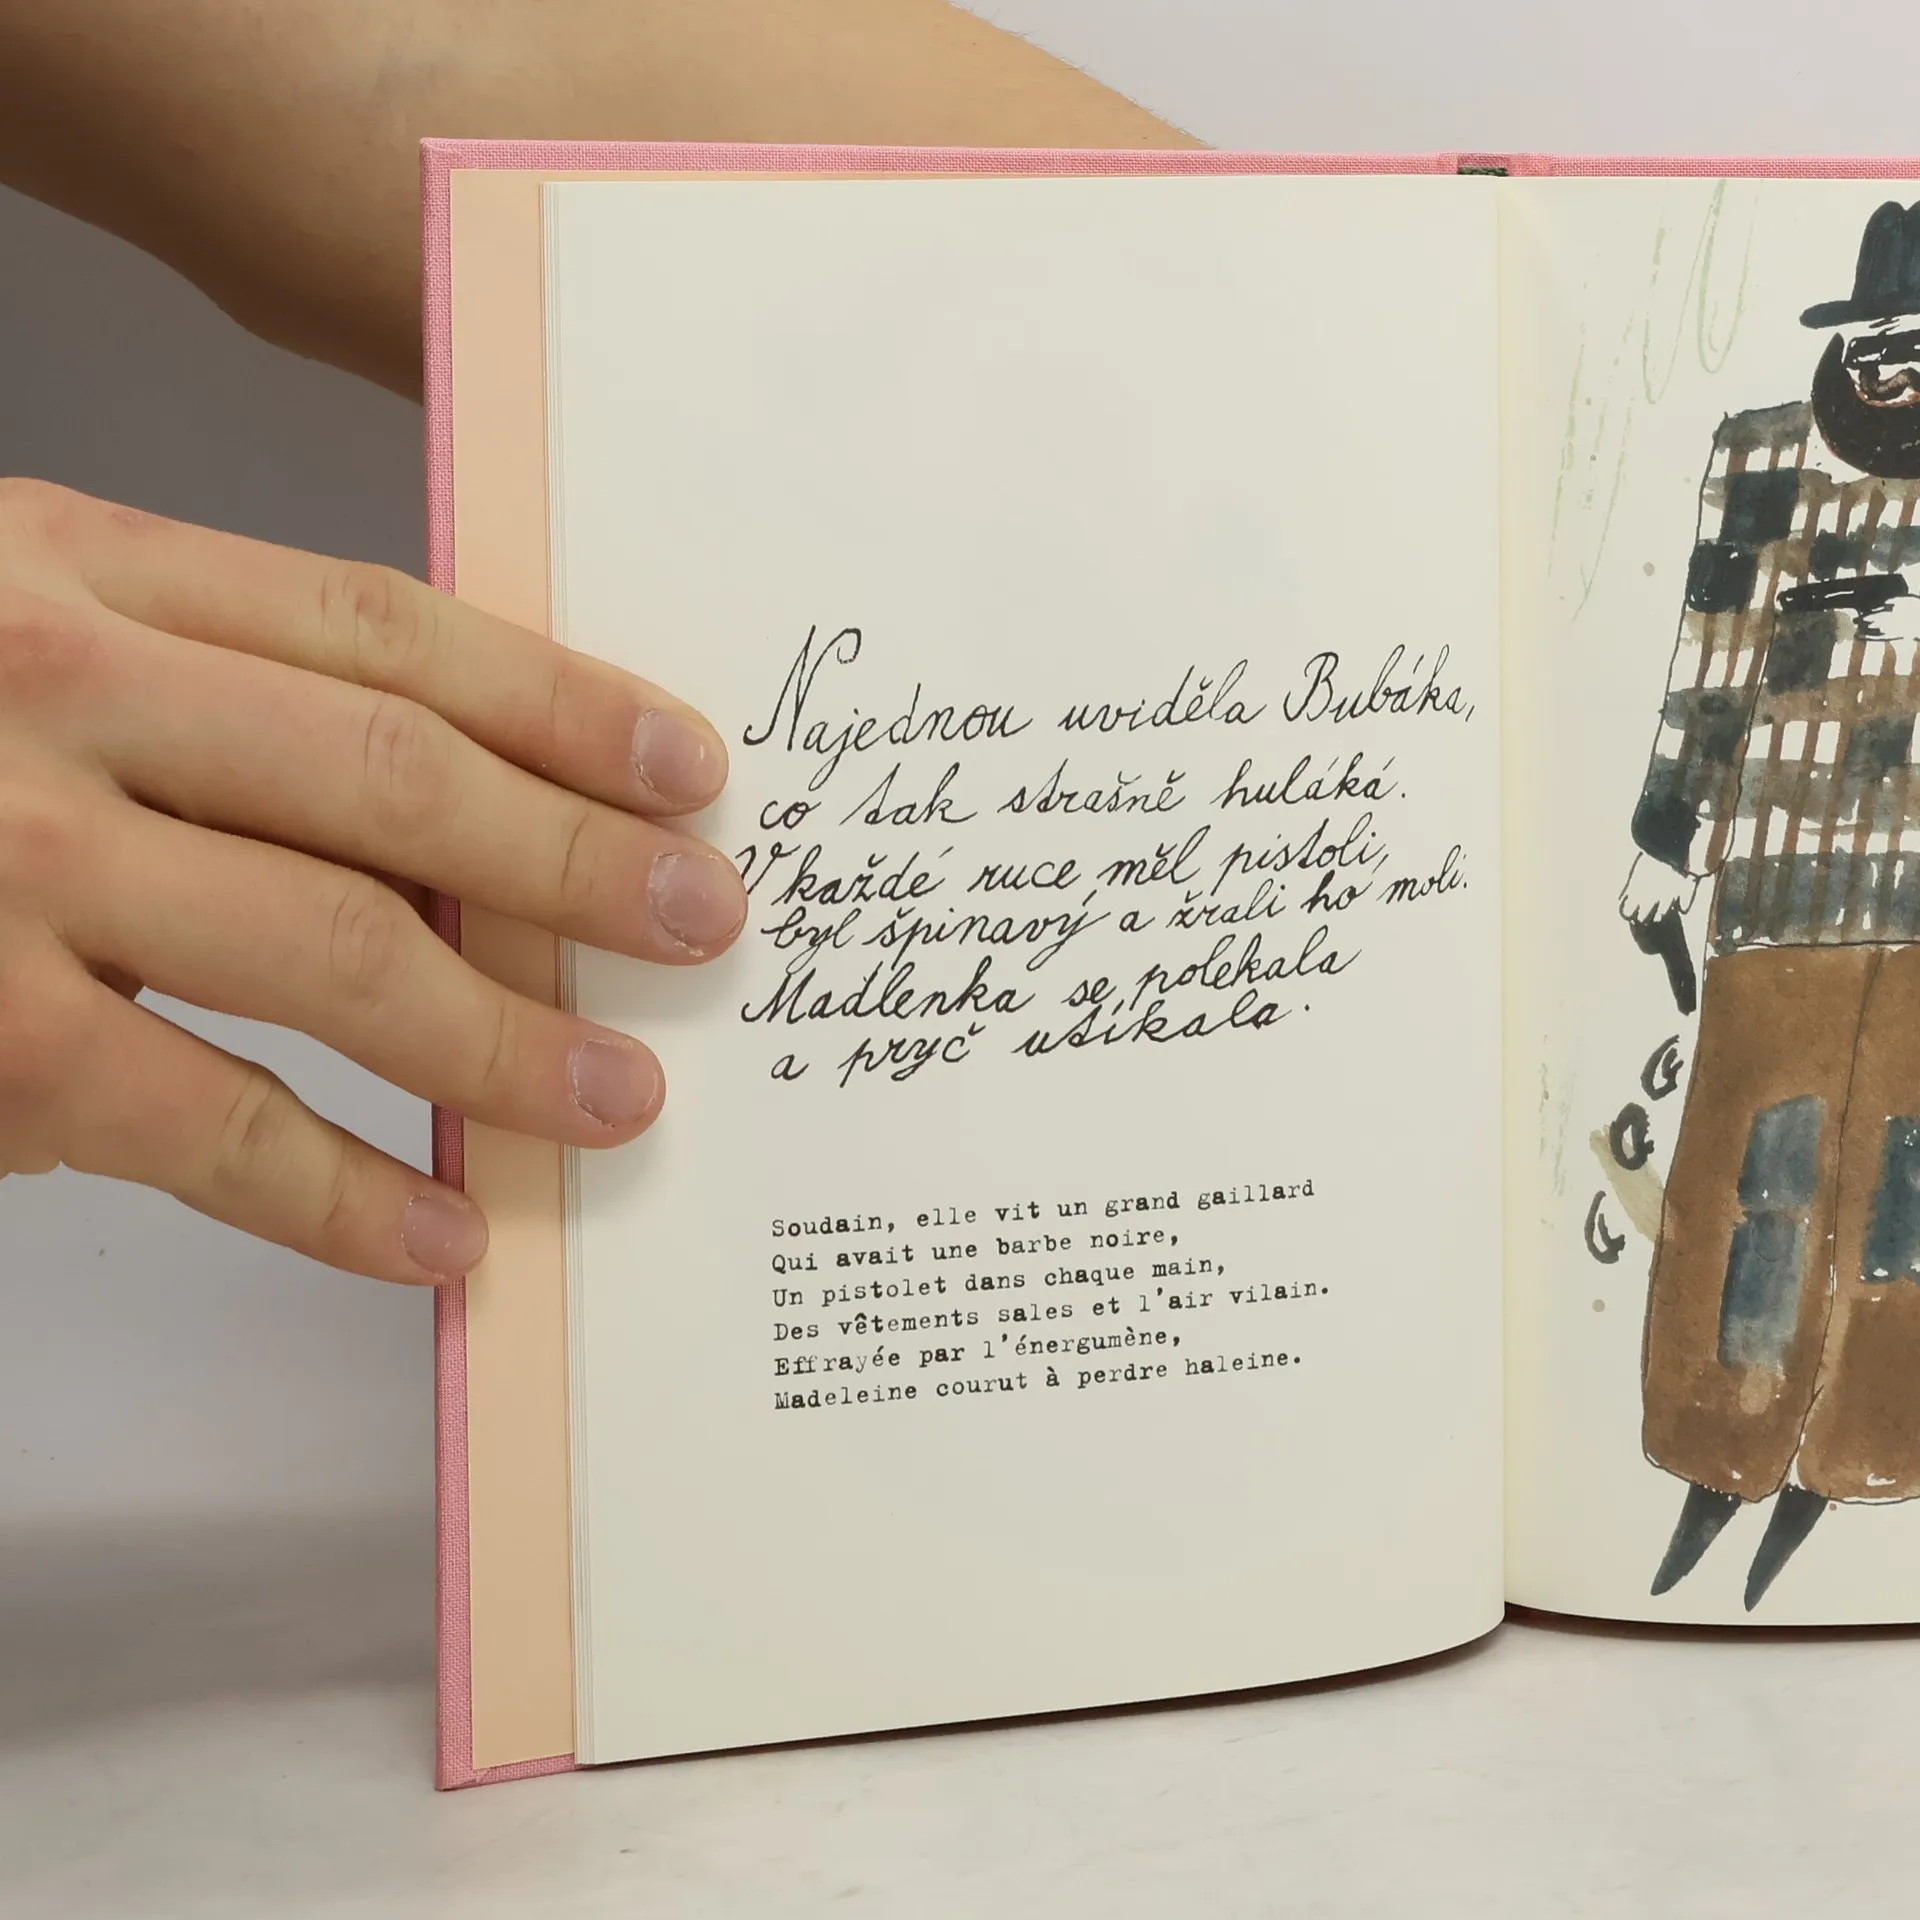 Najednou uviděla Bubáka,
co tak strašně huláká.
V každé ruce měl pistoli,
byl špinavý a žrali ho moli.
Madlenka se polekala
a pryč utíkala.
Soudain, elle vit un grand gaillard
Qui avait une barbe noire,
Un pistolet dans chaque main,
Des vêtements sales et l'air vilain.
Effrayée par l'énergumène,
Madeleine courut à perdre haleine.